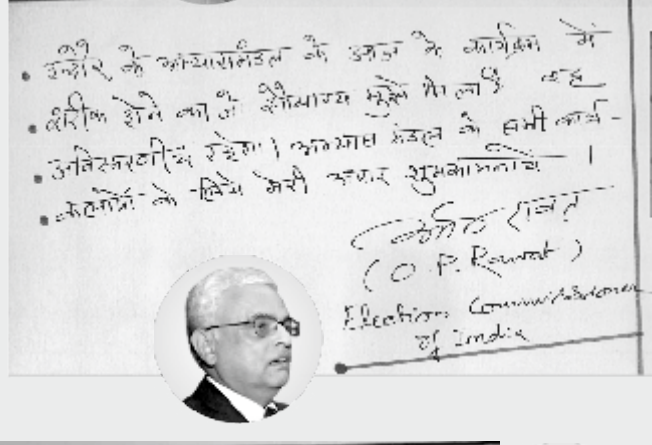 इन्दौर के अभ्यासमंडल के आज के कार्यक्रम में
शरीक होने का जो सौभाग्य मुझे मिला है वह
अविस्मरणीय रहेगा। अभ्यास मंडल के सभी कार्य-
कलापों के लिये मेरी शुभकामनायें।
रावत
(O. P. Rawat)
Election Commissioner
of India